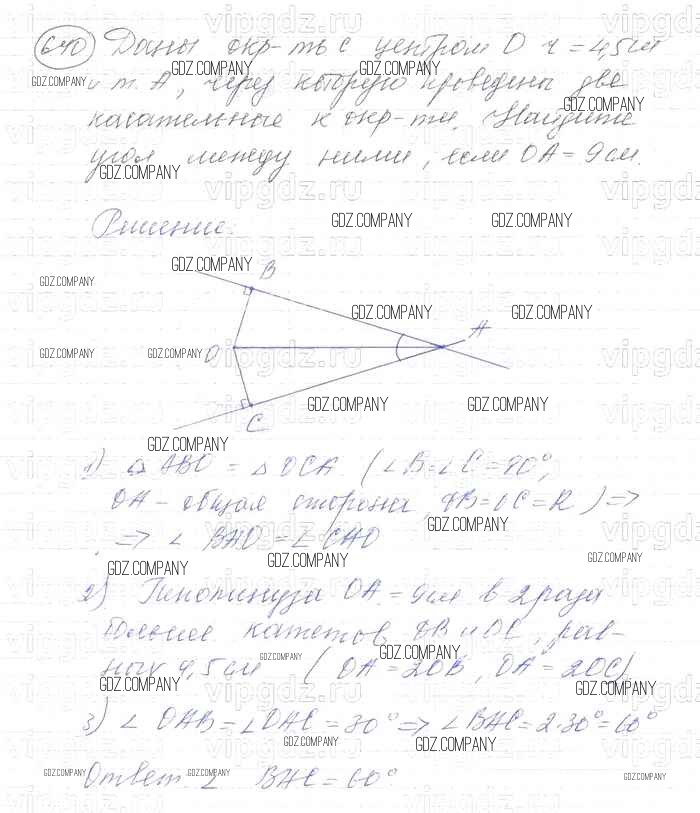 640 Даны окр-ть с центром О r = 4,5см
и т. А, через которую проведены две
касательные к окр-ти. Найдите
угол между ними, если ОА = 9 см.
Решение.
B
O
A
C
1) △ ABO = △ OCA. (∠B=∠C=90°,
OA - общая сторона, OB=OC=R) =>
=> ∠ BAO = ∠ CAO
2) Гипотинуза OA = 9см в 2 раза
больше катетов OB и OC, рав-
ных 4,5см (OA=2OB, OA=2OC)
3) ∠ OAB = ∠ OAC = 30° => ∠BAC = 2·30°=60°
Ответ. ∠ BAC = 60°
vipgdz.ru
GDZ.COMPANY